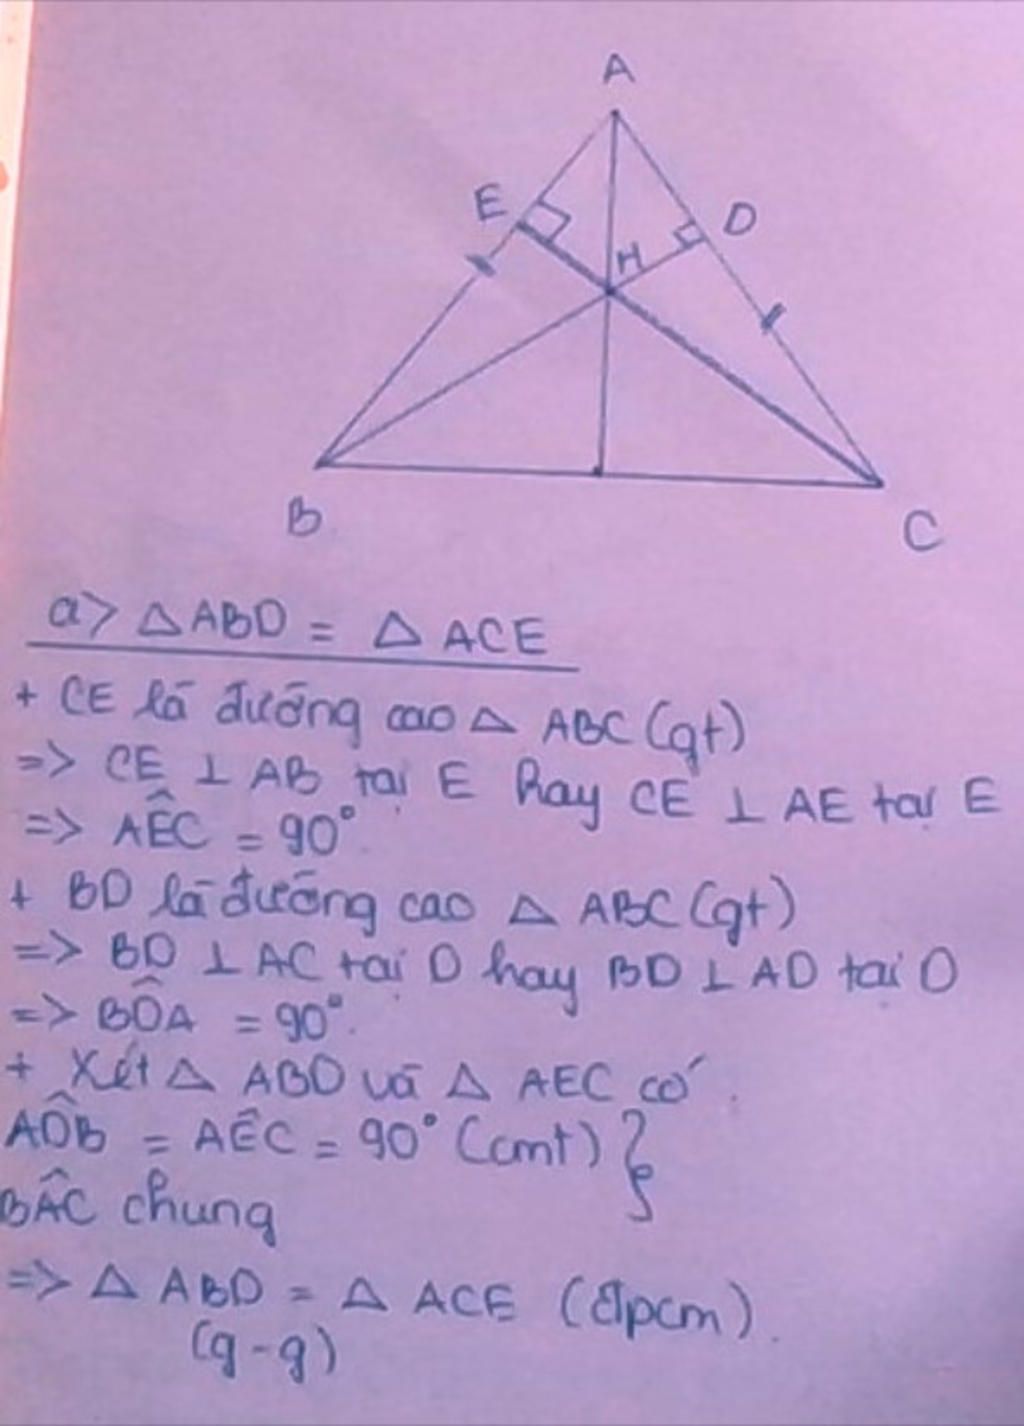 A
E
D
H
B
C
a> △ABD = △ ACE
+ CE là đường cao △ ABC (gt)
=> CE ⊥ AB tại E hay CE ⊥ AE tại E
=> AÊC = 90°
+ BD là đường cao △ ABC (gt)
=> BD ⊥ AC tại D hay BD ⊥ AD tại D
=> BD̂A = 90°.
+ Xét △ ABD và △ AEC có
AD̂B = AÊC = 90° (cmt) }
BÂC chung
=> △ ABD = △ ACE (đpcm).
(g-g)